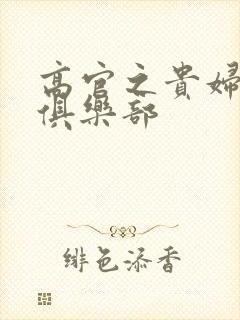 高官之貴婦
俱樂部
緋色添香